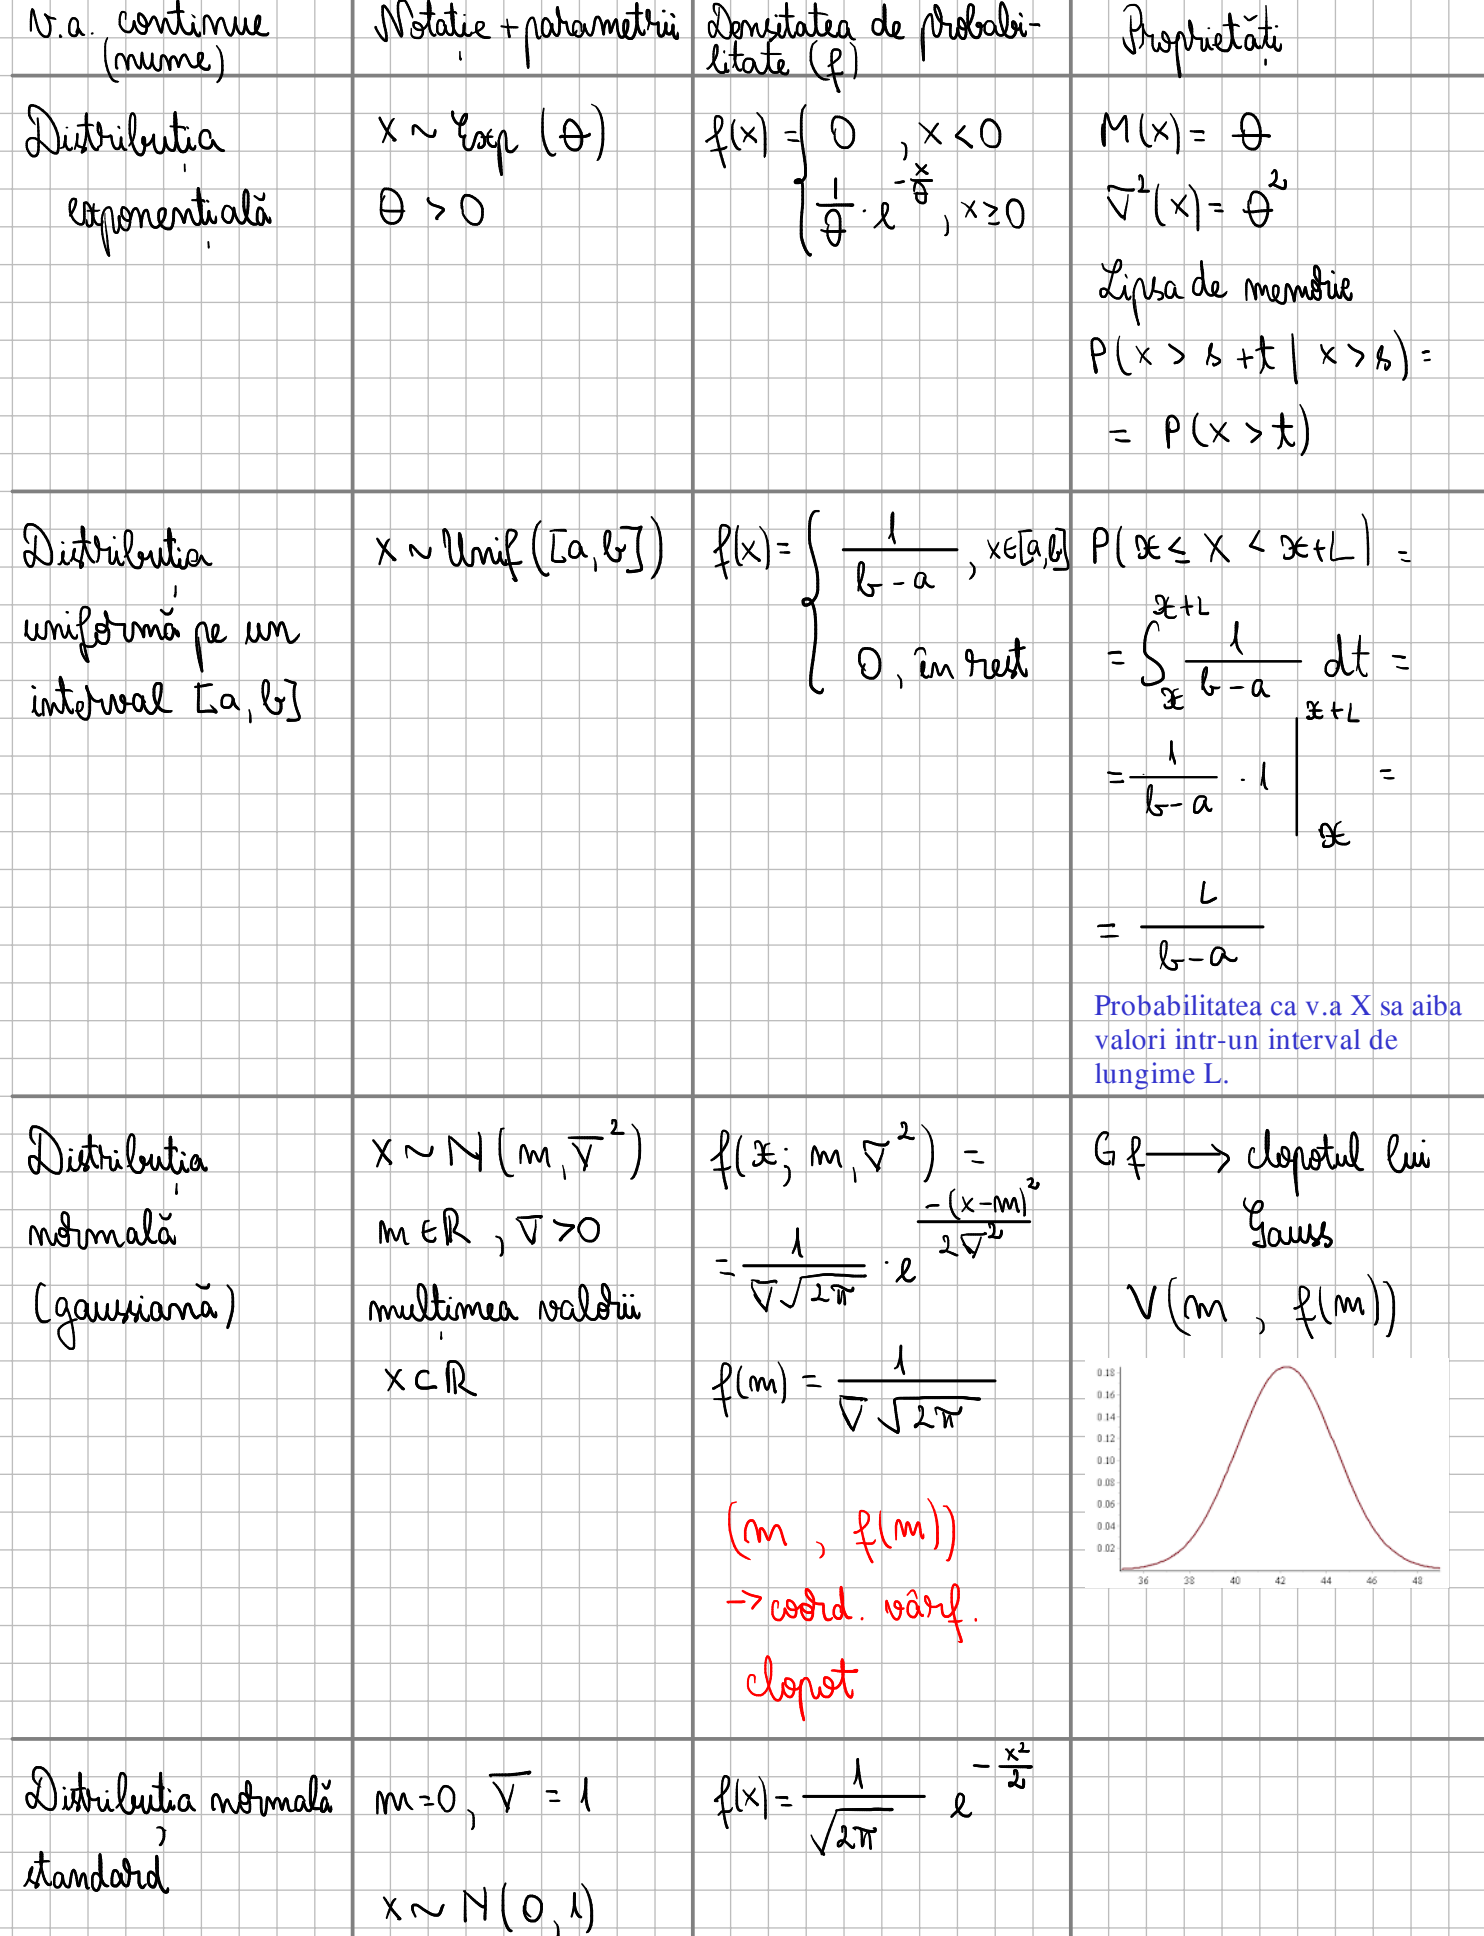 v.a. continue (nume)
Notație + parametrii
Densitatea de probabi-
litate (f)
Proprietăți
Distribuția
exponențială
X ~ Exp (θ)
θ > 0
f(x) = { 0 , x < 0
1/θ · e^(-x/θ) , x ≥ 0
M(x) = θ
∇²(x) = θ²
Lipsa de memorie
P(x > s + t | x > s) =
= P(x > t)
Distribuția
uniformă pe un
interval [a, b]
X ~ Unif ([a, b])
f(x) = { 1/(b-a) , x∈[a,b]
0 , în rest
P(x ≤ X < x+L) =
= ∫_x^(x+L) 1/(b-a) dt =
= 1/(b-a) · 1 |_x^(x+L) =
= L/(b-a)
Probabilitatea ca v.a X sa aiba
valori intr-un interval de
lungime L.
Distribuția
normală
(gaussiană)
X ~ N(m, ∇²)
m ∈ ℝ , ∇ > 0
mulțimea valorii
X ⊂ ℝ
f(x; m, ∇²) =
= 1/(∇√2π) · e^(-(x-m)²/2∇²)
f(m) = 1/(∇√2π)
(m , f(m))
→ coord. vârf.
clopot
Gf ⟶ clopotul lui
Gauss
V(m , f(m))
0.18
0.16
0.14
0.12
0.10
0.08
0.06
0.04
0.02
36 38 40 42 44 46 48
Distribuția normală
standard
m=0, ∇ = 1
X ~ N(0, 1)
f(x) = 1/√2π e^(-x²/2)